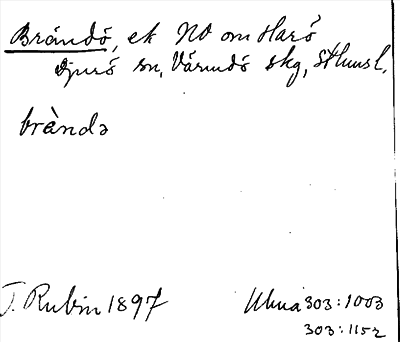 Brändö, ek NO om Harö
Djurö sn, Värmdö skg, Sthmsl.
brànda
J. Rubin 1897
Ulma 303:1003
303:1152